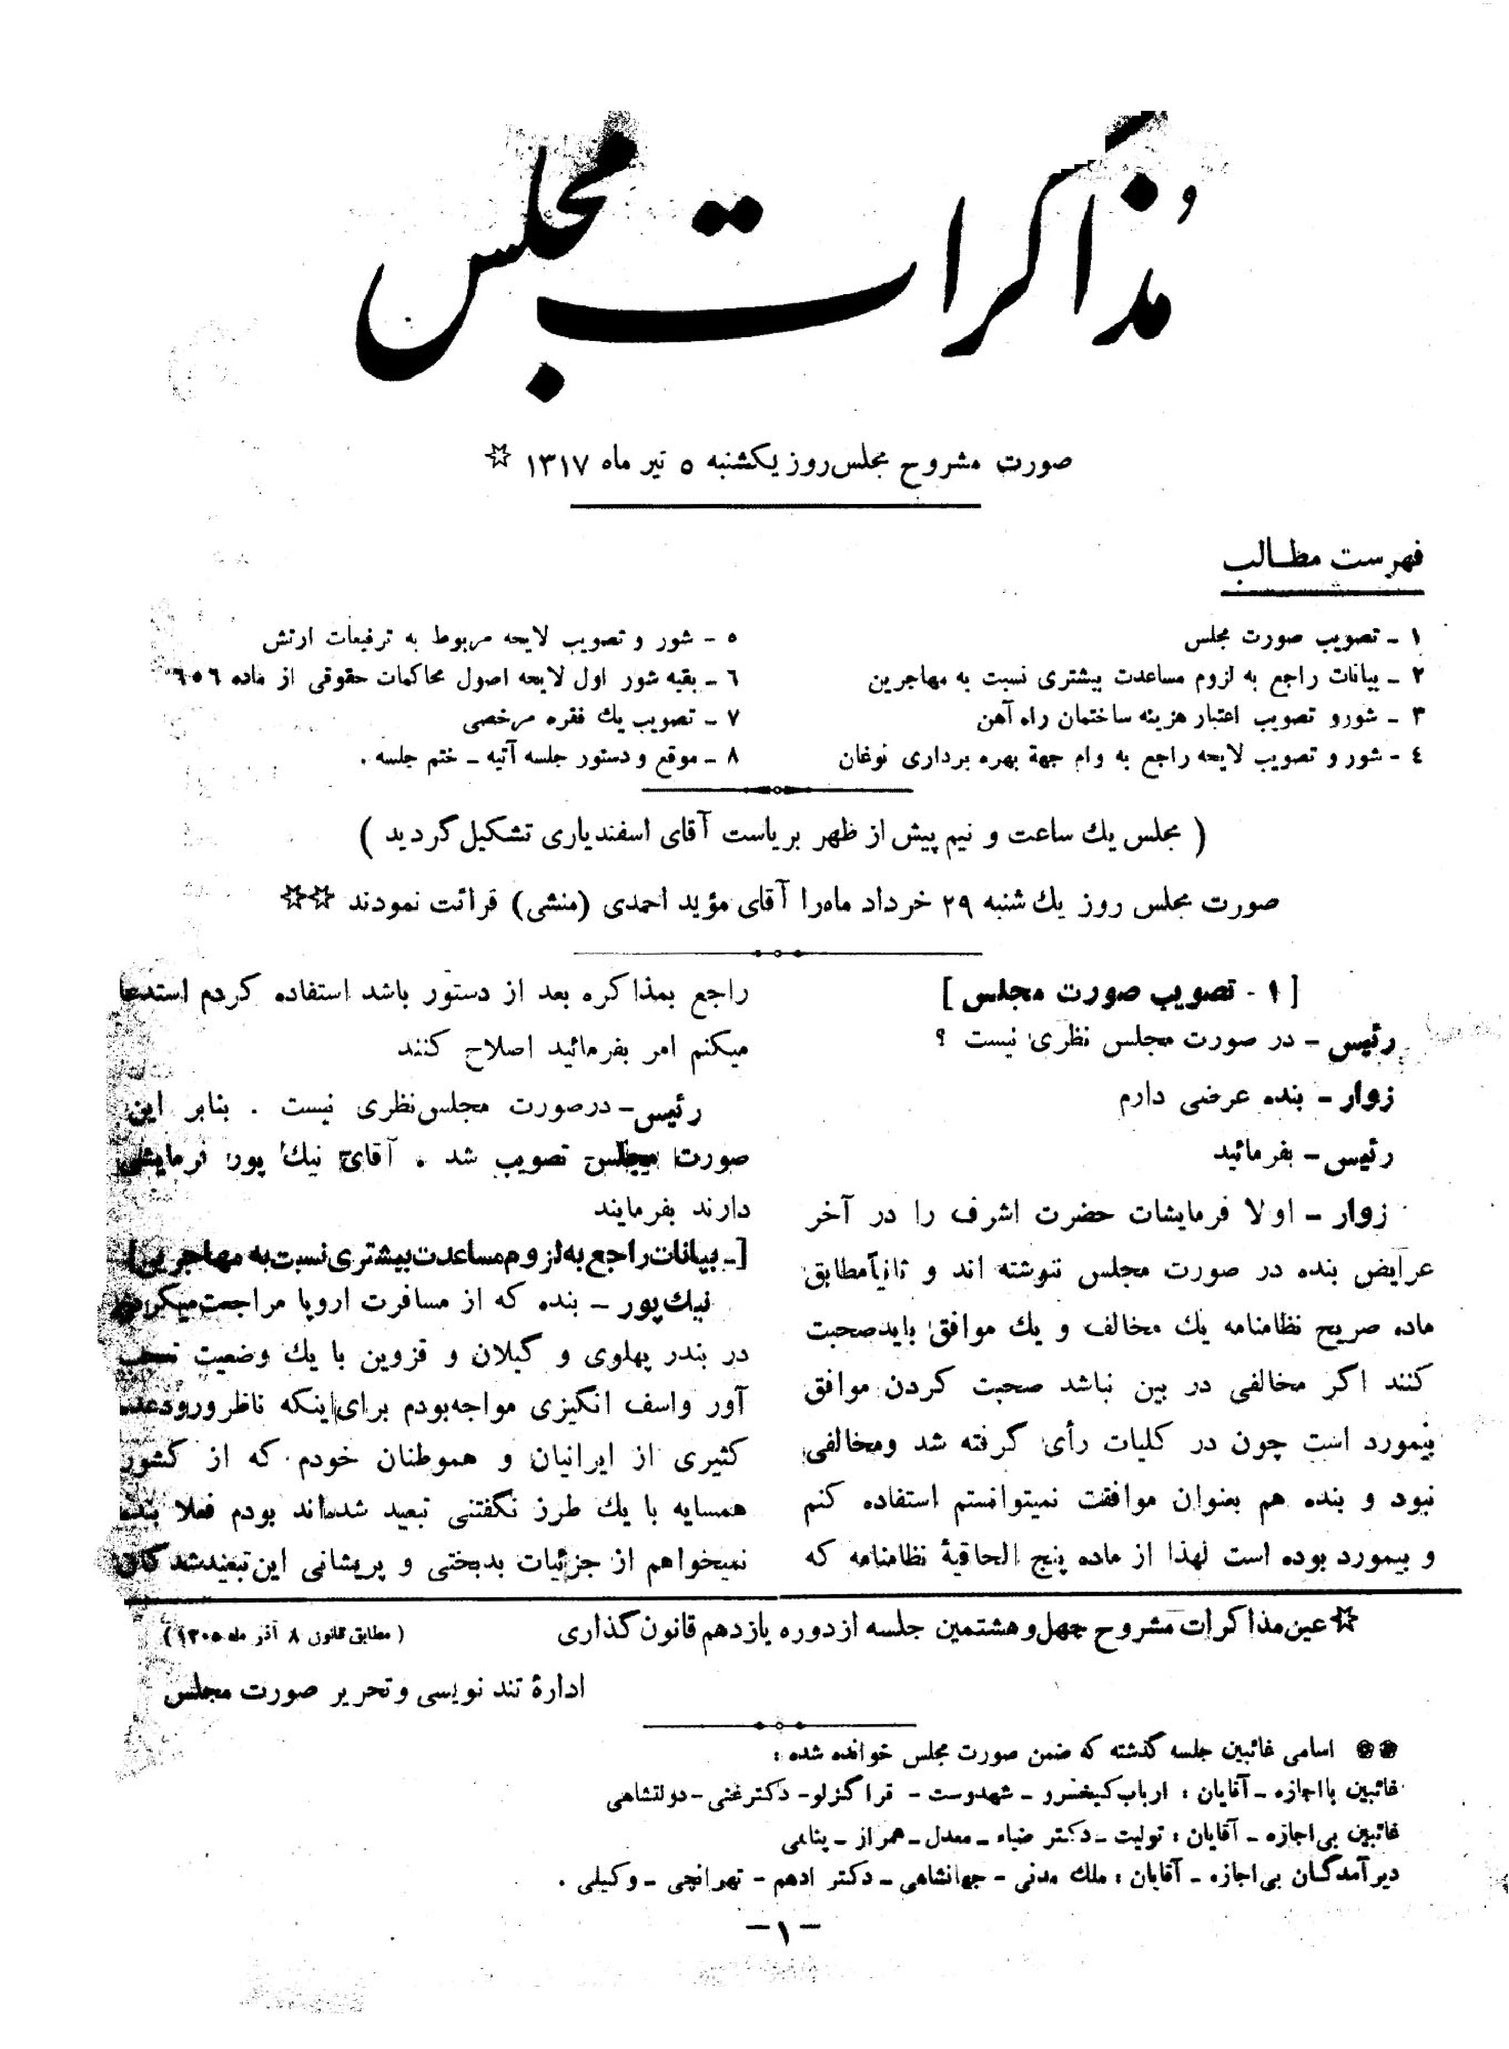 مذاکرات مجلس
صورت مشروح مجلس روز یکشنبه ٥ تیر ماه ١٣١٧ ☆
فهرست مطالب
١ - تصویب صورت مجلس
٢ - بیانات راجع به لزوم مساعدت بیشتری نسبت به مهاجرین
٣ - شورو تصویب اعتبار هزینه ساختمان راه آهن
٤ - شور و تصویب لایحه راجع به وام جهة بهره برداری نوغان
٥ - شور و تصویب لایحه مربوط به ترفیعات ارتش
٦ - بقیه شور اول لایحه اصول محاکمات حقوقی از ماده ٦٥٦
٧ - تصویب یك فقره مرخصی
٨ - موقع و دستور جلسه آتیه - ختم جلسه .
( مجلس یك ساعت و نیم پیش از ظهر بریاست آقای اسفندیاری تشکیل گردید )
صورت مجلس روز یك شنبه ٢٩ خرداد ماه را آقای مؤید احمدی (منشی) قرائت نمودند ☆☆
[ ١ - تصویب صورت مجلس ]
رئیس - در صورت مجلس نظری نیست ؟
زوار - بنده عرضی دارم
رئیس - بفرمائید
زوار - اولا فرمایشات حضرت اشرف را در آخر
عرایض بنده در صورت مجلس ننوشته اند و ثانیاً مطابق
ماده صریح نظامنامه یك مخالف و یك موافق باید صحبت
کنند اگر مخالفی در بین نباشد صحبت کردن موافق
بیمورد است چون در کلیات رأی گرفته شد ومخالفی
نبود و بنده هم بعنوان موافقت نمیتوانستم استفاده کنم
و بیمورد بوده است لهذا از ماده پنج الحاقیۀ نظامنامه که
راجع بمذاکره بعد از دستور باشد استفاده کردم استدعا
میکنم امر بفرمائید اصلاح کنند
رئیس - درصورت مجلس نظری نیست . بنابر این
صورت مجلس تصویب شد . آقای نیك پور فرمایشی
دارند بفرمایند
[ - بیانات راجع به لزوم مساعدت بیشتری نسبت به مهاجرین ]
نیك پور - بنده که از مسافرت اروپا مراجعت میکردم
در بندر پهلوی و گیلان و قزوین با یك وضعیت تعجب
آور واسف انگیزی مواجه بودم برای اینکه ناظر ورود عده
کثیری از ایرانیان و هموطنان خودم که از کشور
همسایه با یك طرز نگفتنی تبعید شده‌اند بودم فعلا بنده
نمیخواهم از جزئیات بدبختی و پریشانی این تبعید شدگان
☆ عین مذاکرات مشروح چهل و هشتمین جلسه از دوره یازدهم قانون گذاری
( مطابق قانون ٨ آذر ماه ١٣٠٥ )
ادارۀ تند نویسی و تحریر صورت مجلس
اسامی غائبین جلسه گذشته که ضمن صورت مجلس خوانده شده :
غائبین بااجازه - آقایان : ارباب کیخسرو - شهدوست - قراگزلو - دکتر غنی - دولتشاهی
غائبین بی اجازه - آقایان : تولیت - دکتر ضیاء - معدل - همراز - پناهی
دیر آمدگان بی اجازه - آقایان : ملك مدنی - جهانشاهی - دکتر ادهم - تهرانچی - وکیلی .
-١-